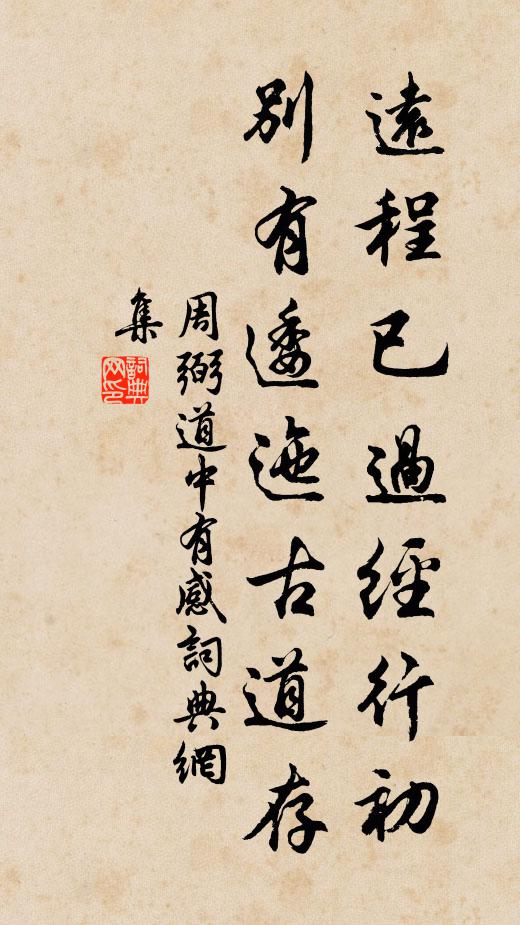 遠程已過經行初
別有逶迤古道存
周弼道中有感詞典網
集
詞典
网印